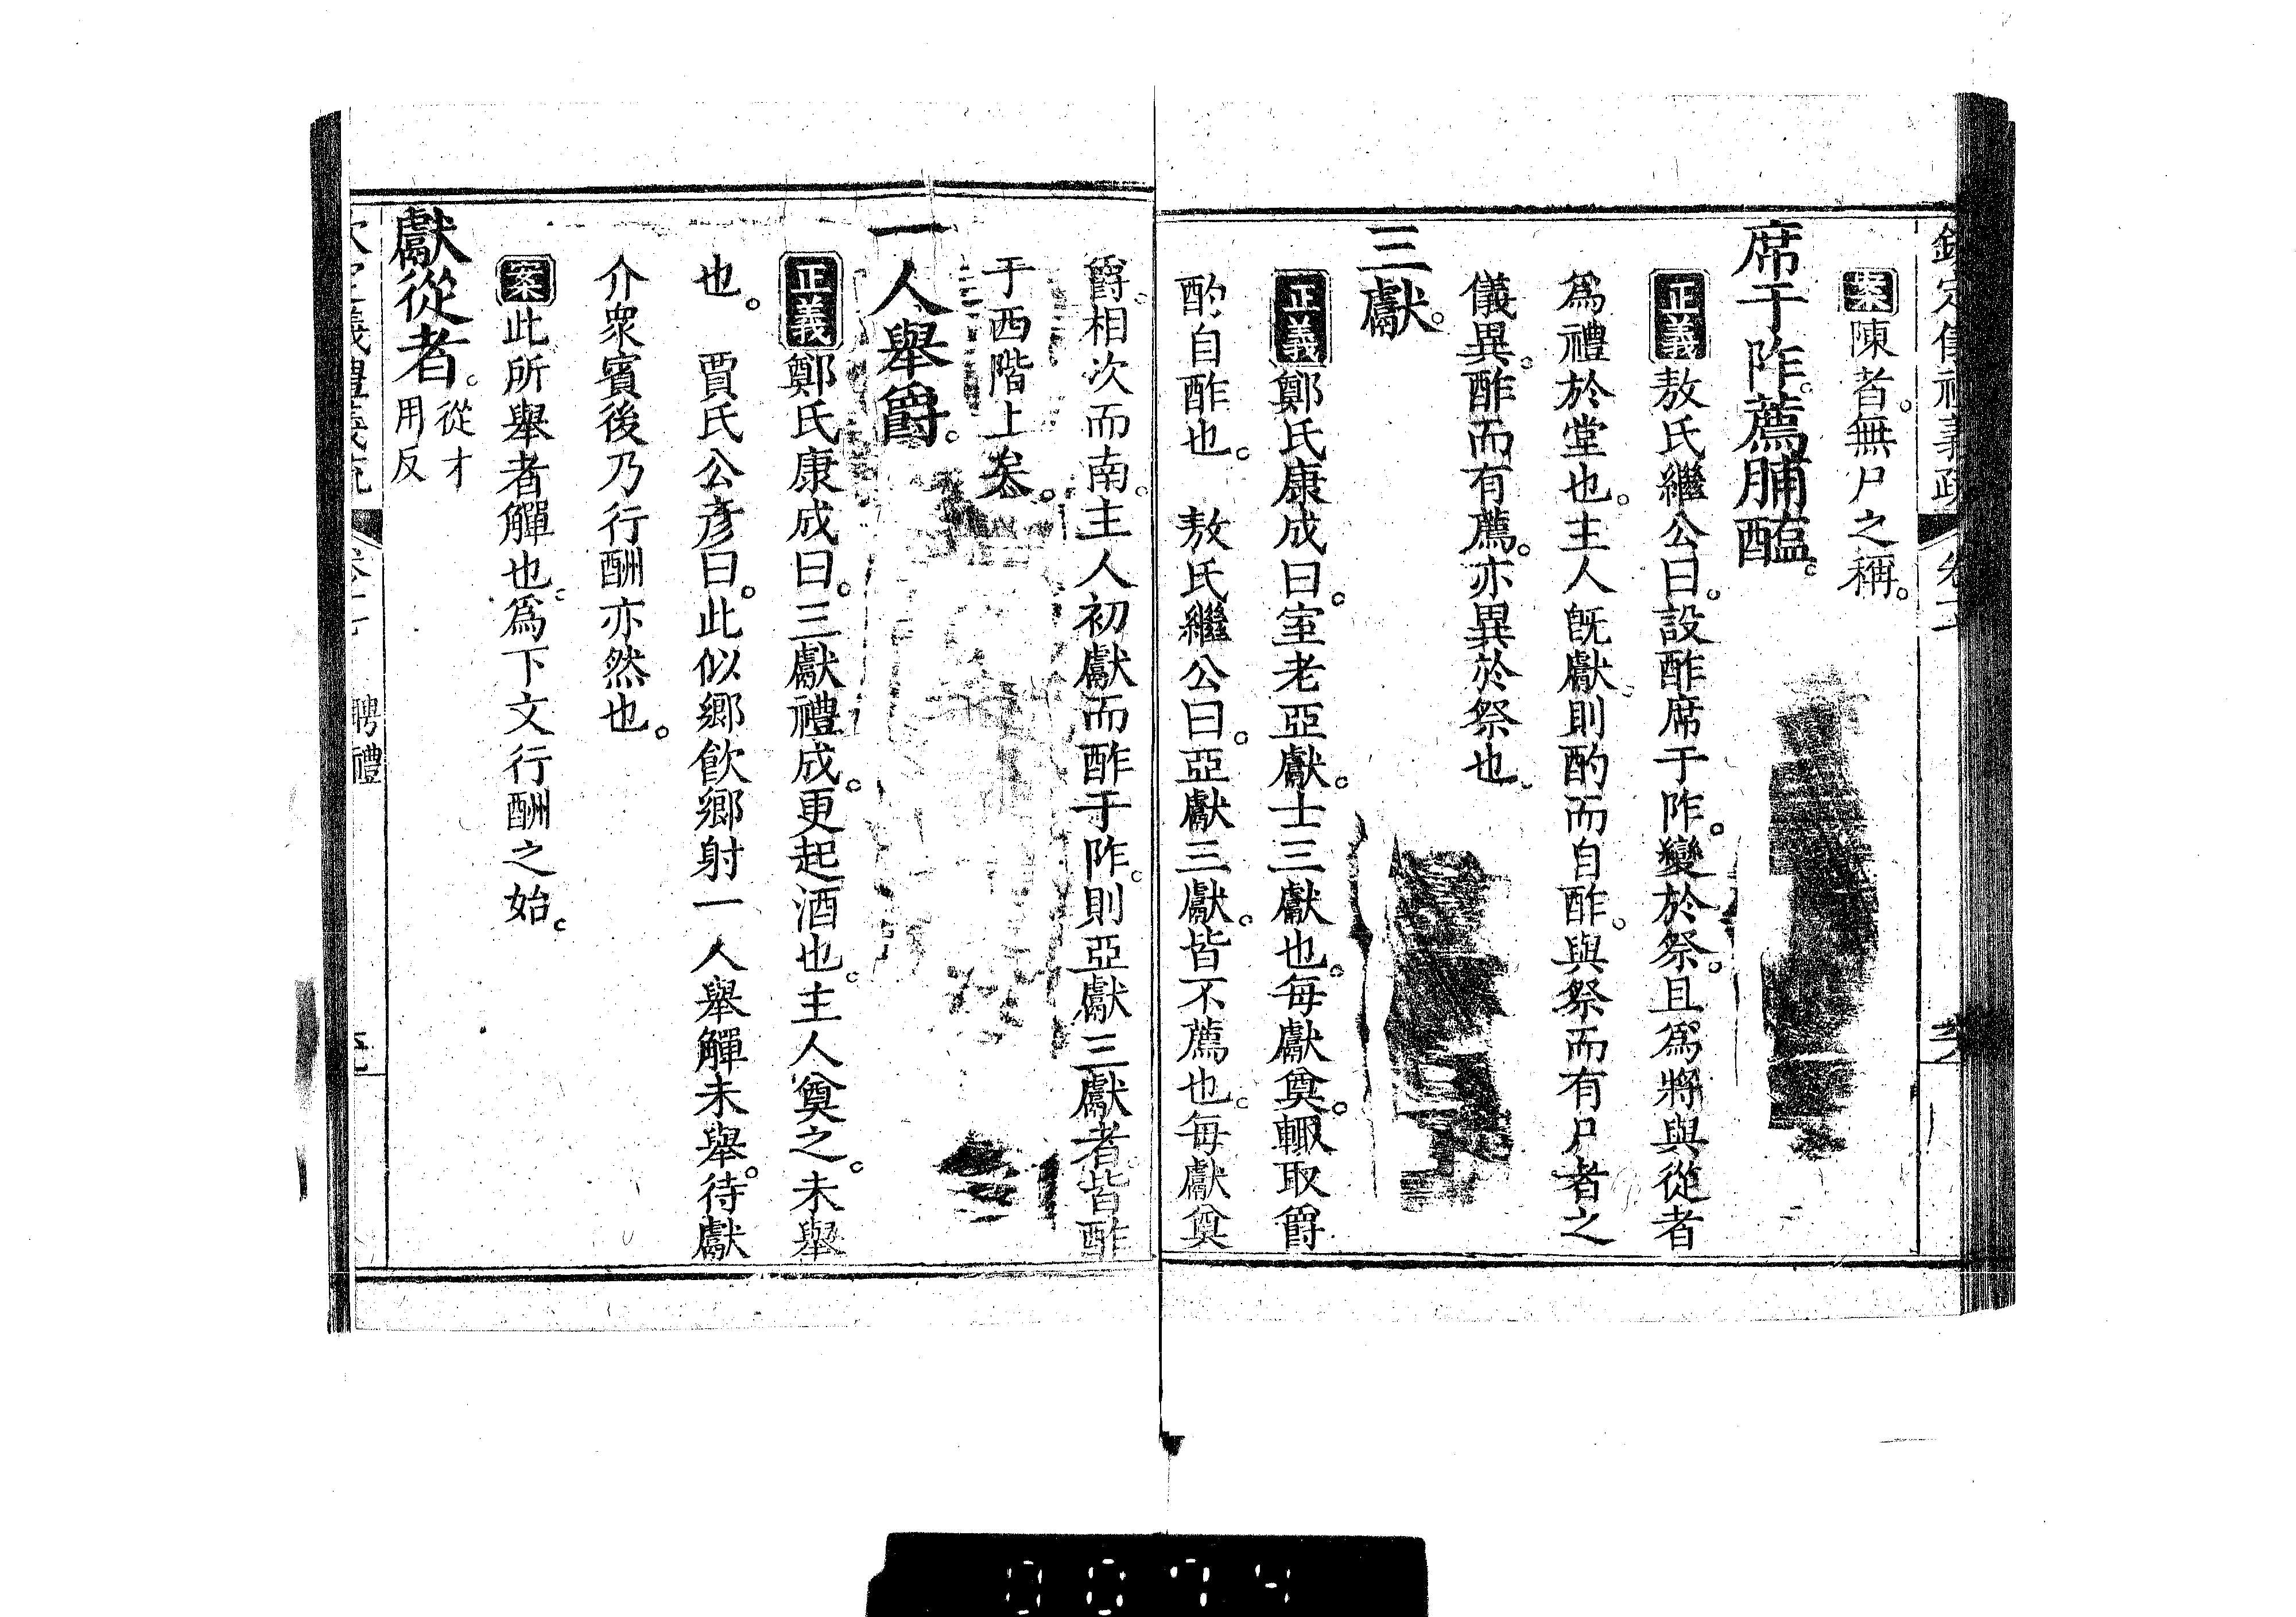 案陳者。無尸之稱。
席于阼。薦脯醢。
正義敖氏繼公曰。設酢席于阼。變於祭。且爲將與從者
爲禮於堂也。主人既獻。則酌而自酢。與祭而有尸者之
儀異。酢而有薦。亦異於祭也。
三獻。
正義鄭氏康成曰。室老亞獻。士三獻也。每獻奠。輒取爵
酌自酢也。 敖氏繼公曰。亞獻三獻。皆不薦也。每獻奠
爵。相次而南。主人初獻而酢于阼。則亞獻三獻者。皆酢
于西階上矣。
一人舉爵。
正義鄭氏康成曰。三獻禮成。更起酒也。主人奠之。未舉
也。 賈氏公彥曰。此似鄉飲鄉射一人舉觶未舉。待獻
介衆賓後乃行酬亦然也。
案此所舉者觶也。爲下文行酬之始。
獻從者。從才用反
聘禮
0074